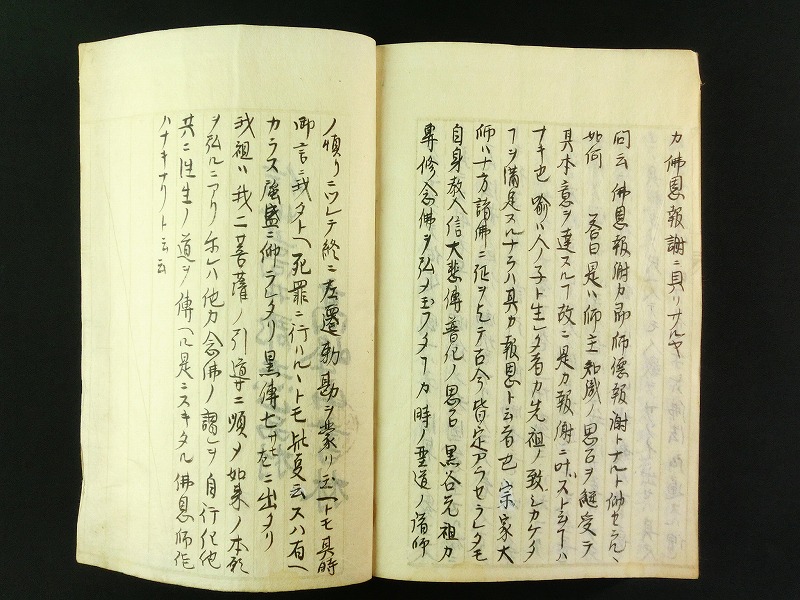 カ佛恩報謝ニ具リナルヤ
問云 佛恩報謝カ即師德報謝トナルト仰セラル、
如何 答曰是ハ師主知識ノ思召ヲ継受テ
其本意ヲ達スルヿ故ニ是カ報謝ニ叶ズト云ヿハ
ナキ也 喩ハ人ノ子ト生レタ者カ先祖ノ致シカケタ
ヿヲ満足スルナラハ其カ報恩ト云者也 宗家大
師ハ十方諸佛ニ証ヲ乞テ古今皆定アラセラレタモ
自身教人信大悲傳普化ノ思召 黒谷元祖カ
專修念佛ヲ弘メ玉フタヿカ時ノ聖道ノ諸師
ノ憤リニツレテ終ニ左遷勅勘ヲ蒙リ玉ヘトモ其時
御言ニ我タトヘ死罪ニ行ハル、トモ此変云スハ有ヘ
カラス強盛ニ仰ラレタリ 黒傳七 ニ出タリ
我祖ハ我二菩薩ノ引導ニ順メ如来ノ本願
ヲ弘ルニアリ 尓レハ他力念佛ノ謂レヲ自行化他
共ニ往生ノ道ヲ傳ヘル是ニスキタル佛恩師作
ハナキナリト云云